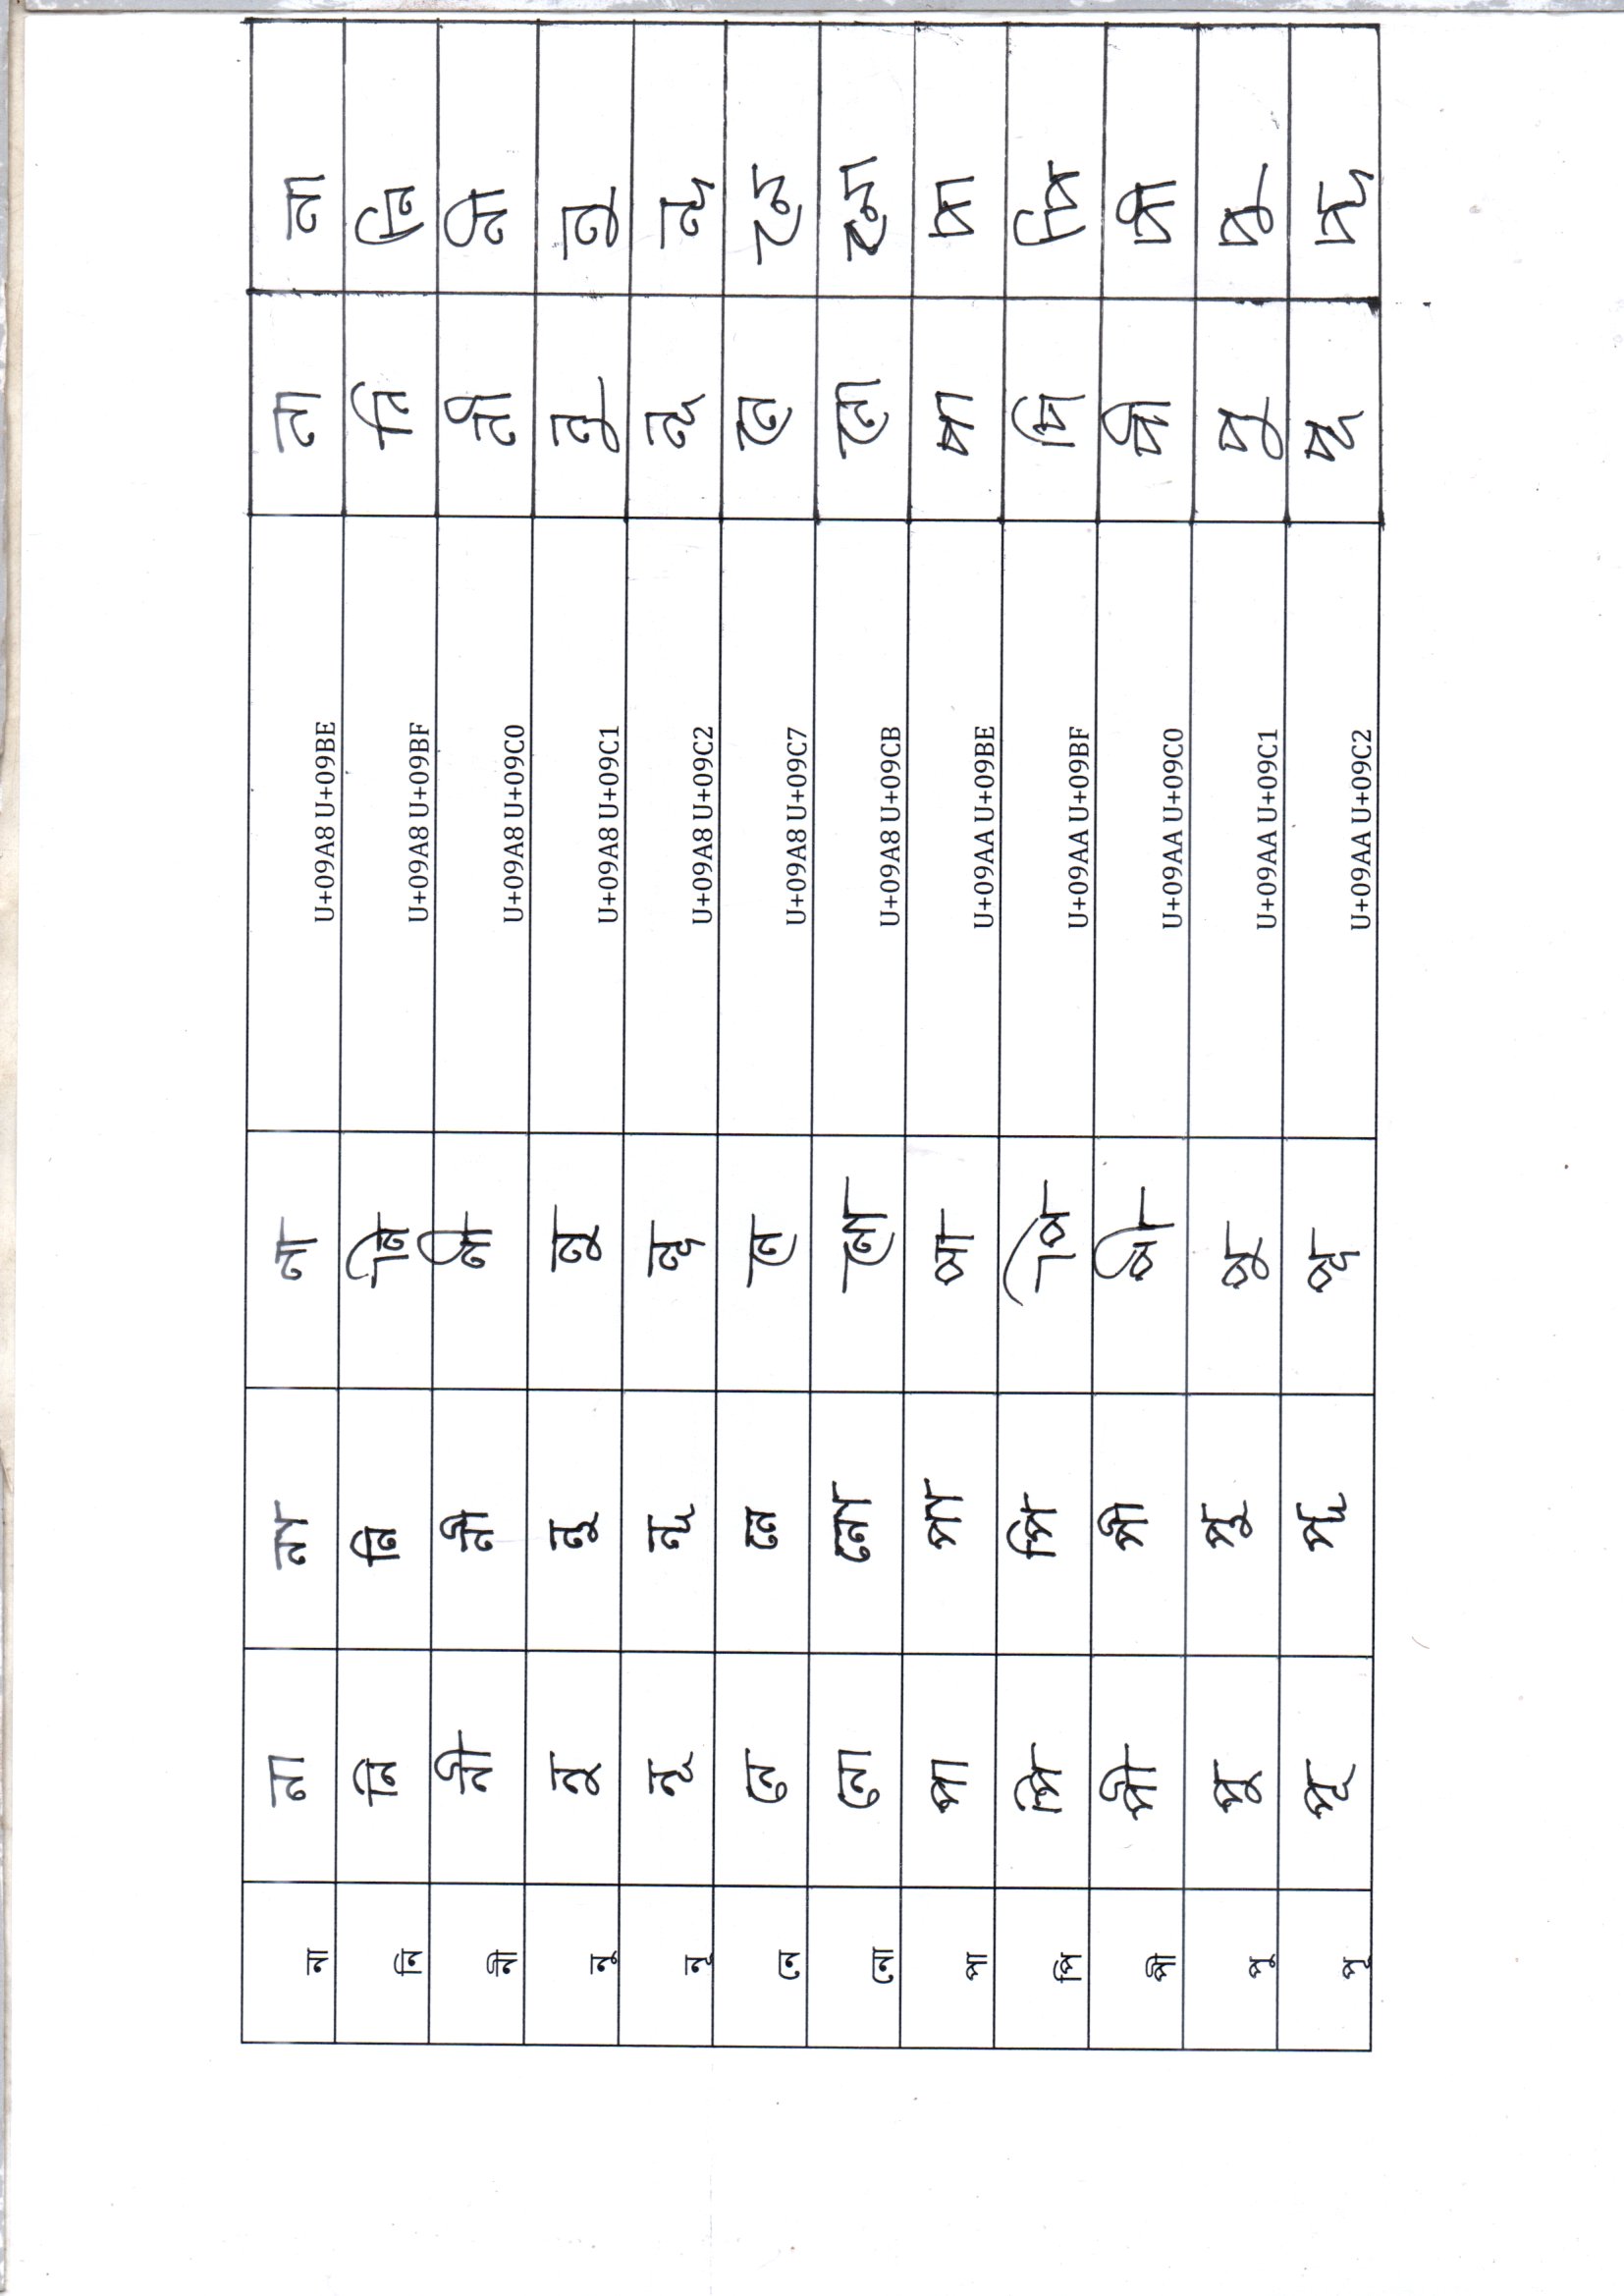 না না না না U+09A8 U+09BE না না
নি নি নি নি U+09A8 U+09BF নি নি
নী নী নী নী U+09A8 U+09C0 নী নী
নু নু নু নু U+09A8 U+09C1 নু নু
নূ নূ নূ নূ U+09A8 U+09C2 নূ নূ
নে নে নে নে U+09A8 U+09C7 নে নে
নো নো নো নো U+09A8 U+09CB নো নো
পা পা পা পা U+09AA U+09BE পা পা
পি পি পি পি U+09AA U+09BF পি পি
পী পী পী পী U+09AA U+09C0 পী পী
পু পু পু পু U+09AA U+09C1 পু পু
পূ পূ পূ পূ U+09AA U+09C2 পূ পূ